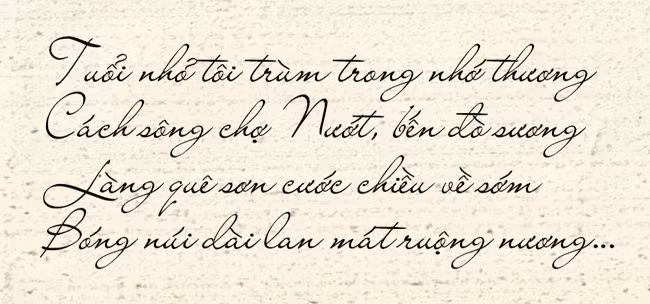 Tuổi nhỏ tôi trùm trong nhớ thương
Cách sông chợ Nướt, bến đò sương
Làng quê sơn cước chiều về sớm
Bóng núi dài lan mát ruộng nương...